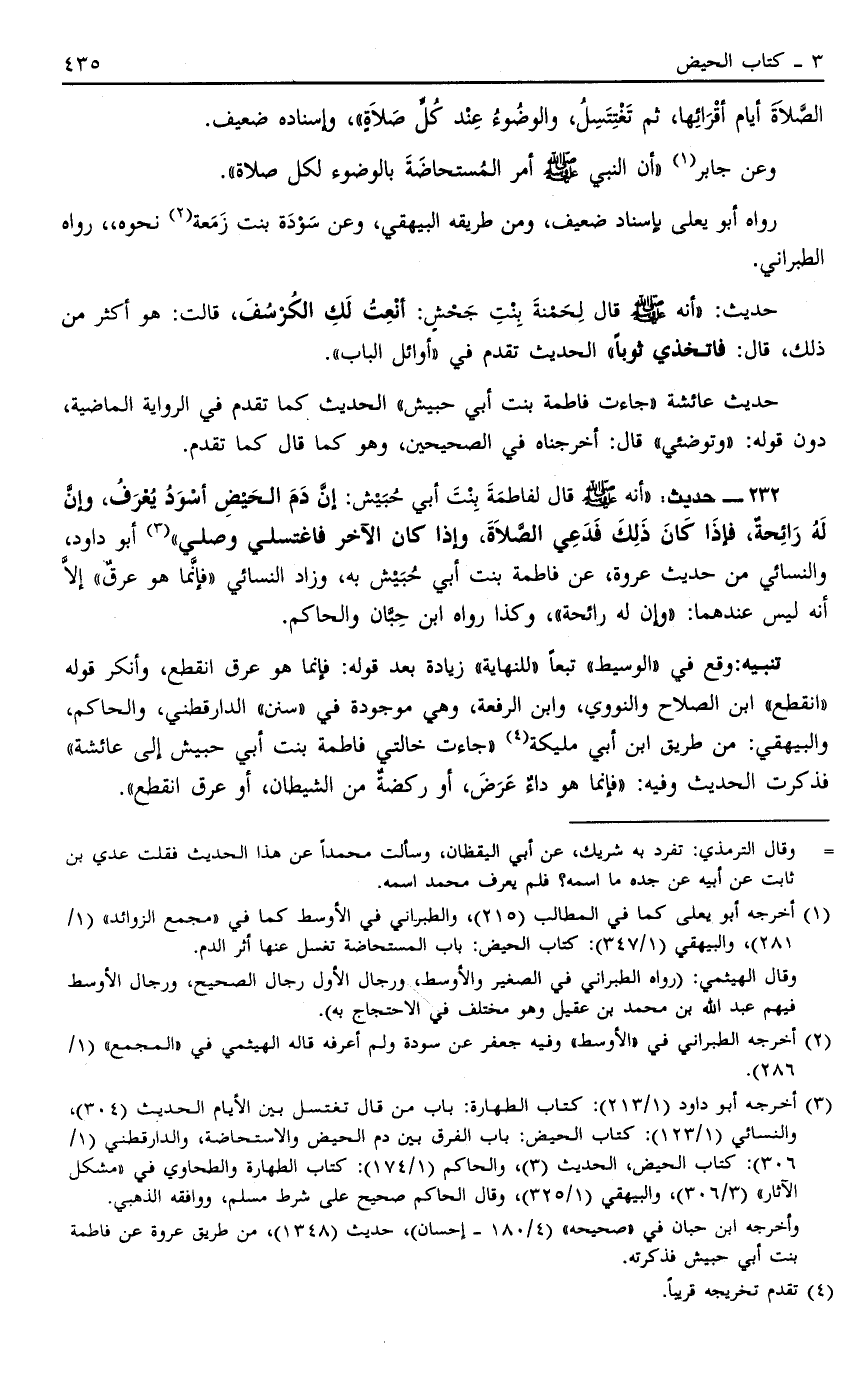 ٣ ـ كتاب الحيض ٤٣٥
الصَّلاَةَ أيام أقْرَائِها، ثم تَغْتِتَسِلُ، والوضُوءُ عِنْد كُلِّ صَلاَةٍ»، وإسناده ضعيف.
وعن جابر(١) «أن النبي ﷺ أمر المُستحاضَةَ بالوضوء لكل صلاة».
رواه أبو يعلى بإسناد ضعيف، ومن طريقه البيهقي، وعن سَوْدَة بنت زَمَعة(٢) نحوه،، رواه
الطبراني.
حديث: «أنه ﷺ قال لِحَمْنةَ بِنْتِ جَحْشٍ: أنْعِتُ لَكِ الكُرْسُفَ، قالت: هو أكثر من
ذلك، قال: فاتخذي ثوباً» الحديث تقدم في «أوائل الباب».
حديث عائشة «جاءت فاطمة بنت أبي حبيش» الحديث كما تقدم في الرواية الماضية،
دون قوله: «وتوضئي» قال: أخرجناه في الصحيحين، وهو كما قال كما تقدم.
٢٣٢ ـ حديث: «أنه ﷺ قال لفاطمَةَ بِنْتَ أبي حُبَيْش: إنَّ دَمَ الحَيْضِ أسْوَدُ يُعْرَفُ، وإنَّ
لَهُ رَائِحةٌ، فإذَا كَانَ ذَلِكَ فَدَعِي الصَّلاَةَ، وإذا كان الآخر فاغتسلي وصلي»(٣) أبو داود،
والنسائي من حديث عروة، عن فاطمة بنت أبي حُبَيْش به، وزاد النسائي «فإنَّما هو عرقٌ» إلاَّ
أنه ليس عندهما: «وإن له رائحة»، وكذا رواه ابن حِبَّان والحاكم.
تنبيه:وقع في «الوسيط» تبعاً «للنهاية» زيادة بعد قوله: فإنما هو عرق انقطع، وأنكر قوله
«انقطع» ابن الصلاح والنووي، وابن الرفعة، وهي موجودة في «سنن» الدارقطني، والحاكم،
والبيهقي: من طريق ابن أبي مليكة(٤) «جاءت خالتي فاطمة بنت أبي حبيش إلى عائشة»
فذكرت الحديث وفيه: «فإنما هو داءٌ عَرَضَ، أو ركضةٌ من الشيطان، أو عرق انقطع».
= وقال الترمذي: تفرد به شريك، عن أبي اليقظان، وسألت محمداً عن هذا الحديث فقلت عدي بن
ثابت عن أبيه عن جده ما اسمه؟ فلم يعرف محمد اسمه.
(١) أخرجه أبو يعلى كما في المطالب (٢١٥)، والطبراني في الأوسط كما في «مجمع الزوائد» (١/
٢٨١)، والبيهقي (٣٤٧/١): كتاب الحيض: باب المستحاضة تغسل عنها أثر الدم.
وقال الهيثمي: (رواه الطبراني في الصغير والأوسط، ورجال الأول رجال الصحيح، ورجال الأوسط
فيهم عبد الله بن محمد بن عقيل وهو مختلف في الاحتجاج به).
(٢) أخرجه الطبراني في «الأوسط» وفيه جعفر عن سودة ولم أعرفه قاله الهيثمي في «المجمع» (١/
٢٨٦).
(٣) أخرجه أبو داود (٢١٣/١): كتاب الطهارة: باب من قال تغتسل بين الأيام الحديث (٣٠٤)،
والنسائي (١٢٣/١): كتاب الحيض: باب الفرق بين دم الحيض والاستحاضة، والدارقطني (١/
٣٠٦): كتاب الحيض، الحديث (٣)، والحاكم (١٧٤/١): كتاب الطهارة والطحاوي في «مشكل
الآثار» (٣٠٦/٣)، والبيهقي (٣٢٥/١)، وقال الحاكم صحيح على شرط مسلم، ووافقه الذهبي.
وأخرجه ابن حبان في «صحيحه» (١٨٠/٤ ـ إحسان)، حديث (١٣٤٨)، من طريق عروة عن فاطمة
بنت أبي حبيش فذكرته.
(٤) تقدم تخريجه قريباً.